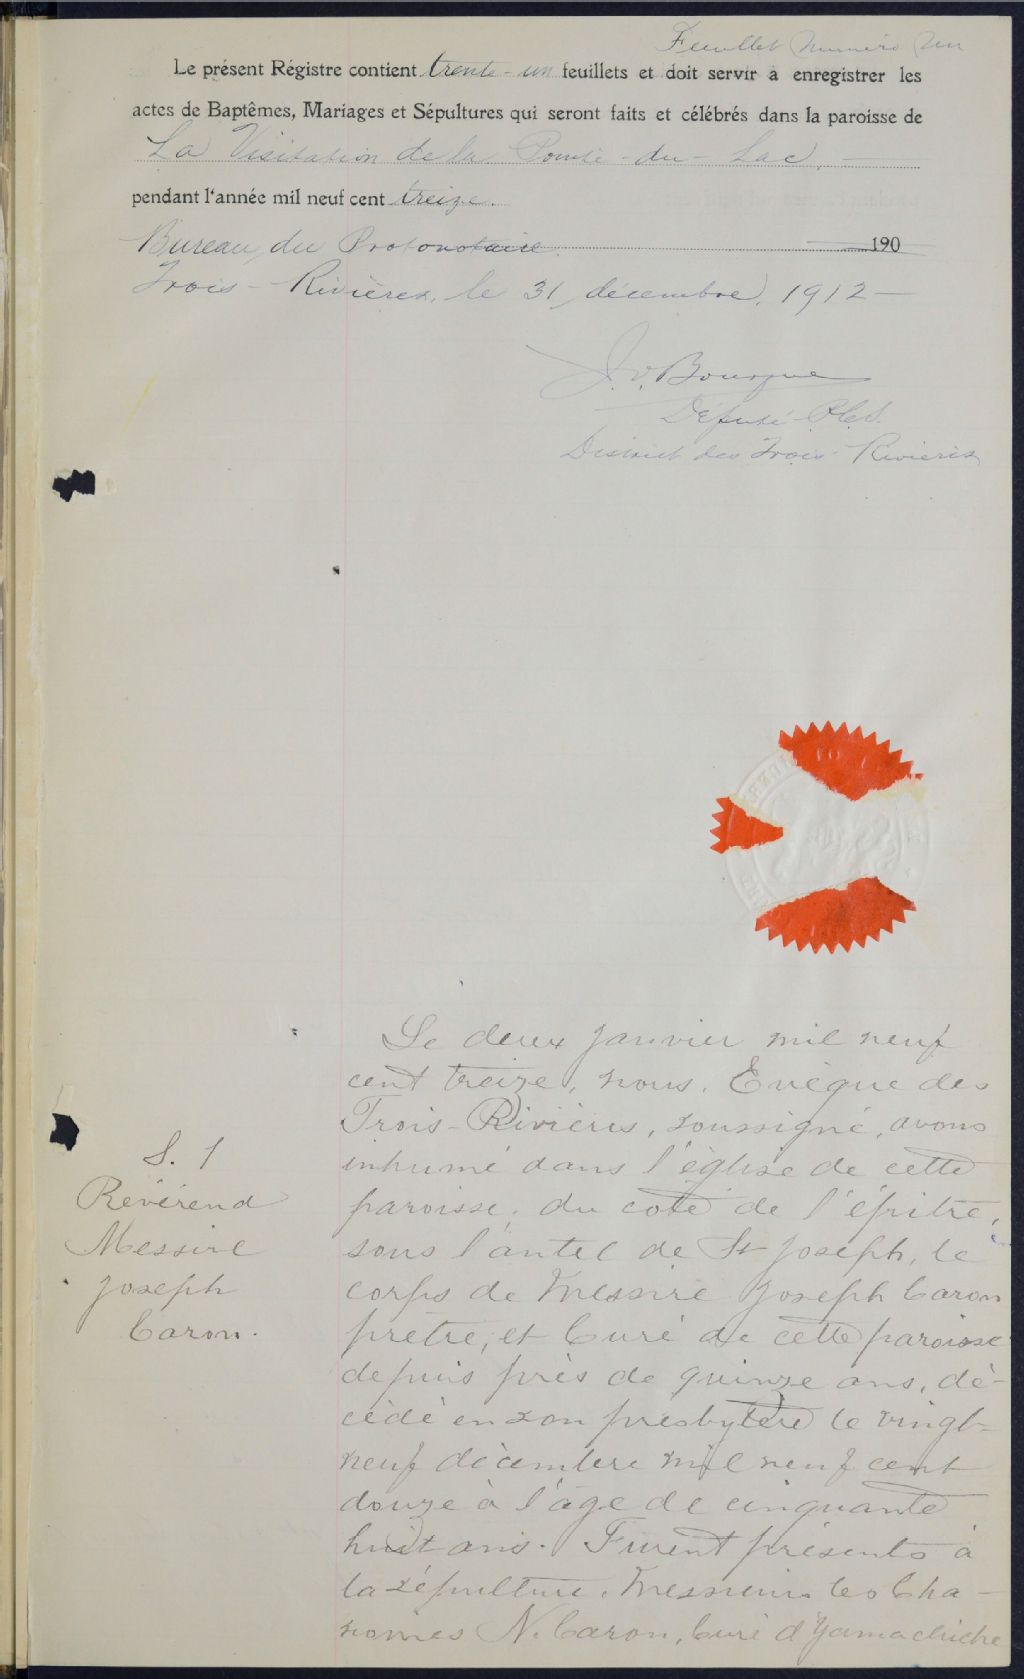 Feuillet Numéro Un
Le présent Régistre contient trente-un feuillets et doit servir à enregistrer les
actes de Baptêmes, Mariages et Sépultures qui seront faits et célébrés dans la paroisse de
La Visitation de la Pointe-du-Lac,
pendant l'année mil neuf cent treize.
Bureau du Protonotaire. 190
Trois-Rivières, le 31 décembre, 1912
J. V. Bourque
Député-P.C.S.
District des Trois-Rivières
S. 1
Révérend
Messire
Joseph
Caron.
Le deux janvier mil neuf
cent treize, nous, Evêque des
Trois-Rivières, soussigné, avons
inhumé dans l'église de cette
paroisse, du coté de l'épitre,
sous l'autel de St Joseph, le
corps de Messire Joseph Caron
prêtre, et Curé de cette paroisse
depuis près de quinze ans, dé-
cédé en son presbytère le vingt-
neuf décembre mil neuf cent
douze à l'âge de cinquante
huit ans. Furent présents à
la sépulture, Messieurs les Cha-
noines N. Caron, Curé d'Yamachiche